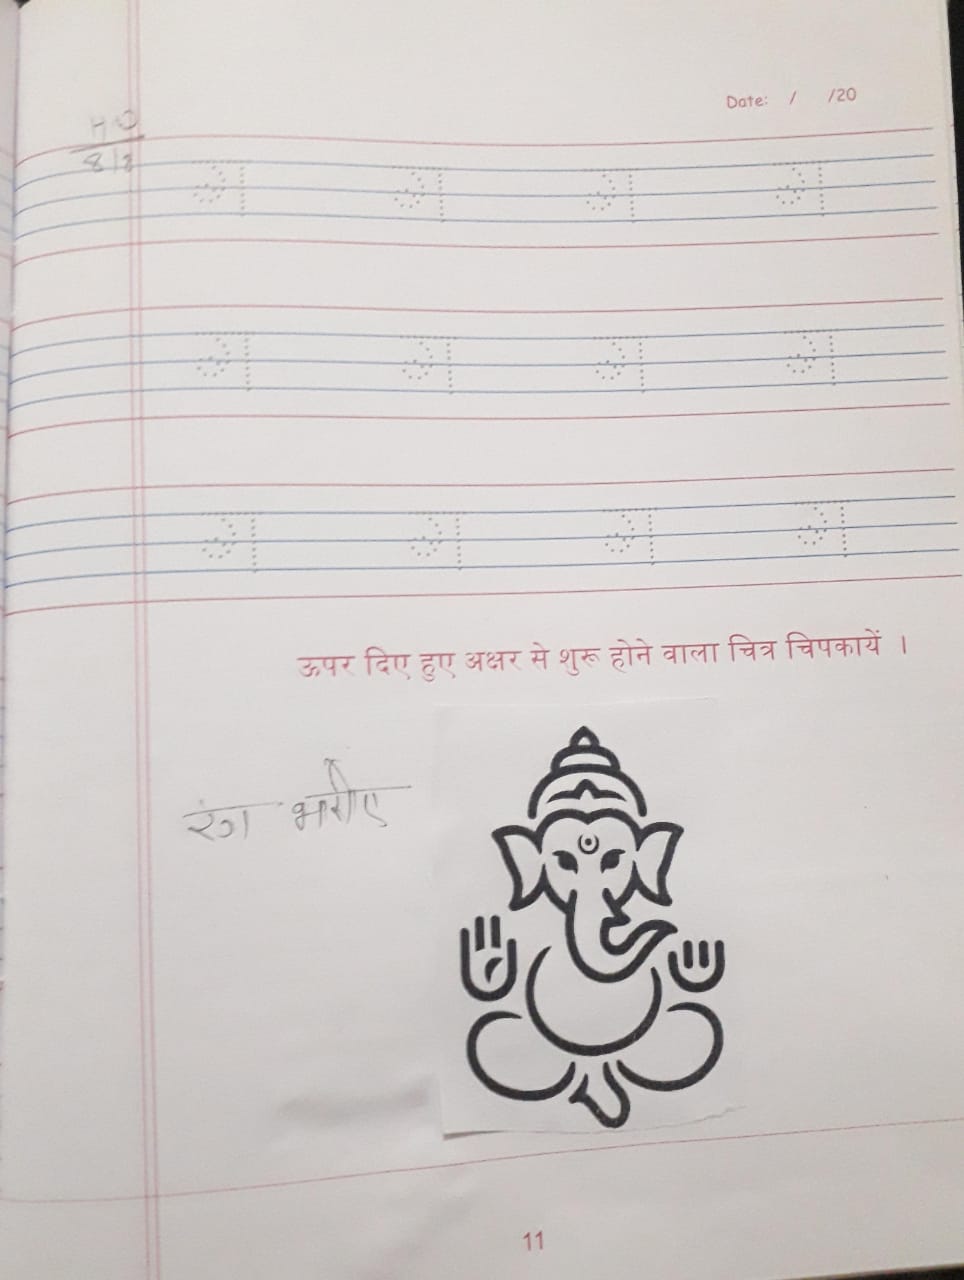 Date: / /20
H.W
8/2
अ अ अ अ
अ अ अ अ
अ अ अ अ
ऊपर दिए हुए अक्षर से शुरू होने वाला चित्र चिपकायें ।
रंग भरीए
11